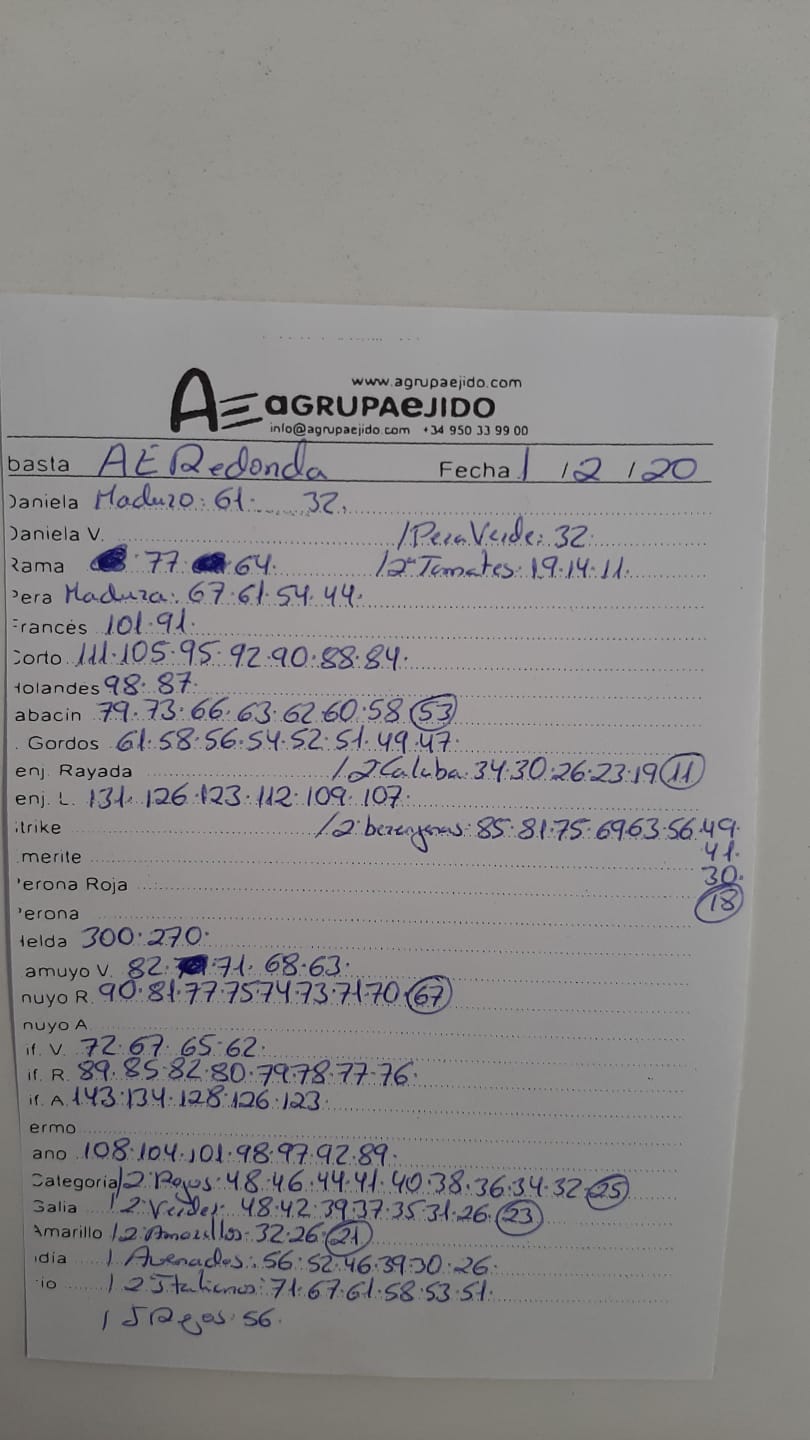 www.agrupaejido.com
AE aGRUPAeJIDO
info@agrupaejido.com +34 950 33 99 00
basta AE Redonda Fecha 1 / 2 / 20
Daniela Maduro: 61. 32.
Daniela V. /Pera Verde: 32.
Rama 77. 64. /2ª Tomates: 19.14.11.
Pera Madura: 67.61.54.44.
Francés 101.91.
Corto 111.105.95.92.90.88.84.
Holandes 98.87.
abacin 79.73.66.63.62.60.58.53
. Gordos 61.58.56.54.52.51.49.47.
enj. Rayada /2 Calaba: 34.30.26.23.19.11
enj. L. 131.126.123.112.109.107.
itrike /2 berenjenas: 85.81.75.69.63.56.49.
41.
merite
30.
erona Roja
18
erona
elda 300.270.
amuyo V. 82. 71.68.63.
nuyo R. 90.81.77.75.74.73.71.70.67
nuyo A
if. V. 72.67.65.62.
if. R. 89.85.82.80.79.78.77.76.
if. A. 143.134.128.126.123.
ermo
ano 108.104.101.98.97.92.89.
Categoria /2 Rojos: 48.46.44.41.40.38.36.34.32.25
Galia /2 Verdes: 48.42.39.37.35.31.26.23
Amarillo /2 Amarillos: 32.26.21
idía / Asenados: 56.52.46.39.30.26.
io /2 Italianos: 71.67.61.58.53.51.
/ J Rojos: 56.